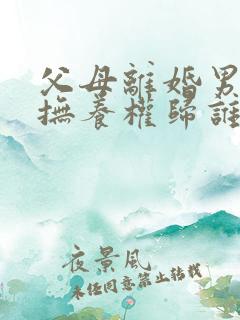 父母離婚男
撫養權歸誰
夜景風
未經同意禁止轉載